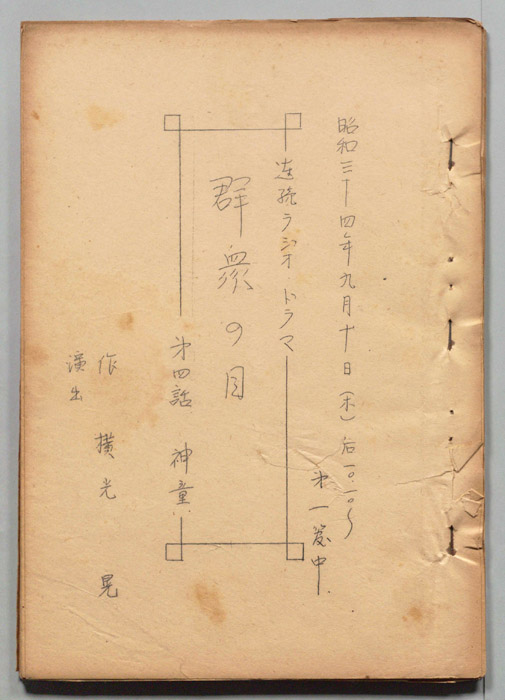 昭和三十四年九月十日(木)后一〇.一〇〜
第一篇中
連続ラジオ・ドラマ
群衆の目
第四話 神童
作 横光 晃
演出